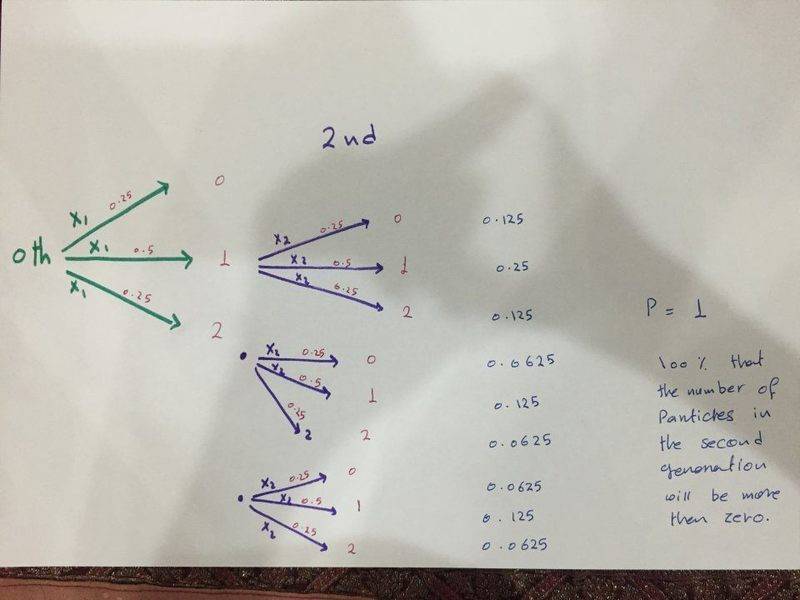 2nd
0th
X1 0.25 0
X1 0.5 1
X1 0.25 2
X2 0.25 0 0.125
X2 0.5 1 0.25
X2 0.25 2 0.125
X2 0.25 0 0.0625
X2 0.5 1 0.125
0.25 2 2 0.0625
X2 0.25 0 0.0625
X2 0.5 1 0.125
X2 0.25 2 0.0625
P = 1
100% that
the number of
Particles in
the second
generation
will be more
then zero.